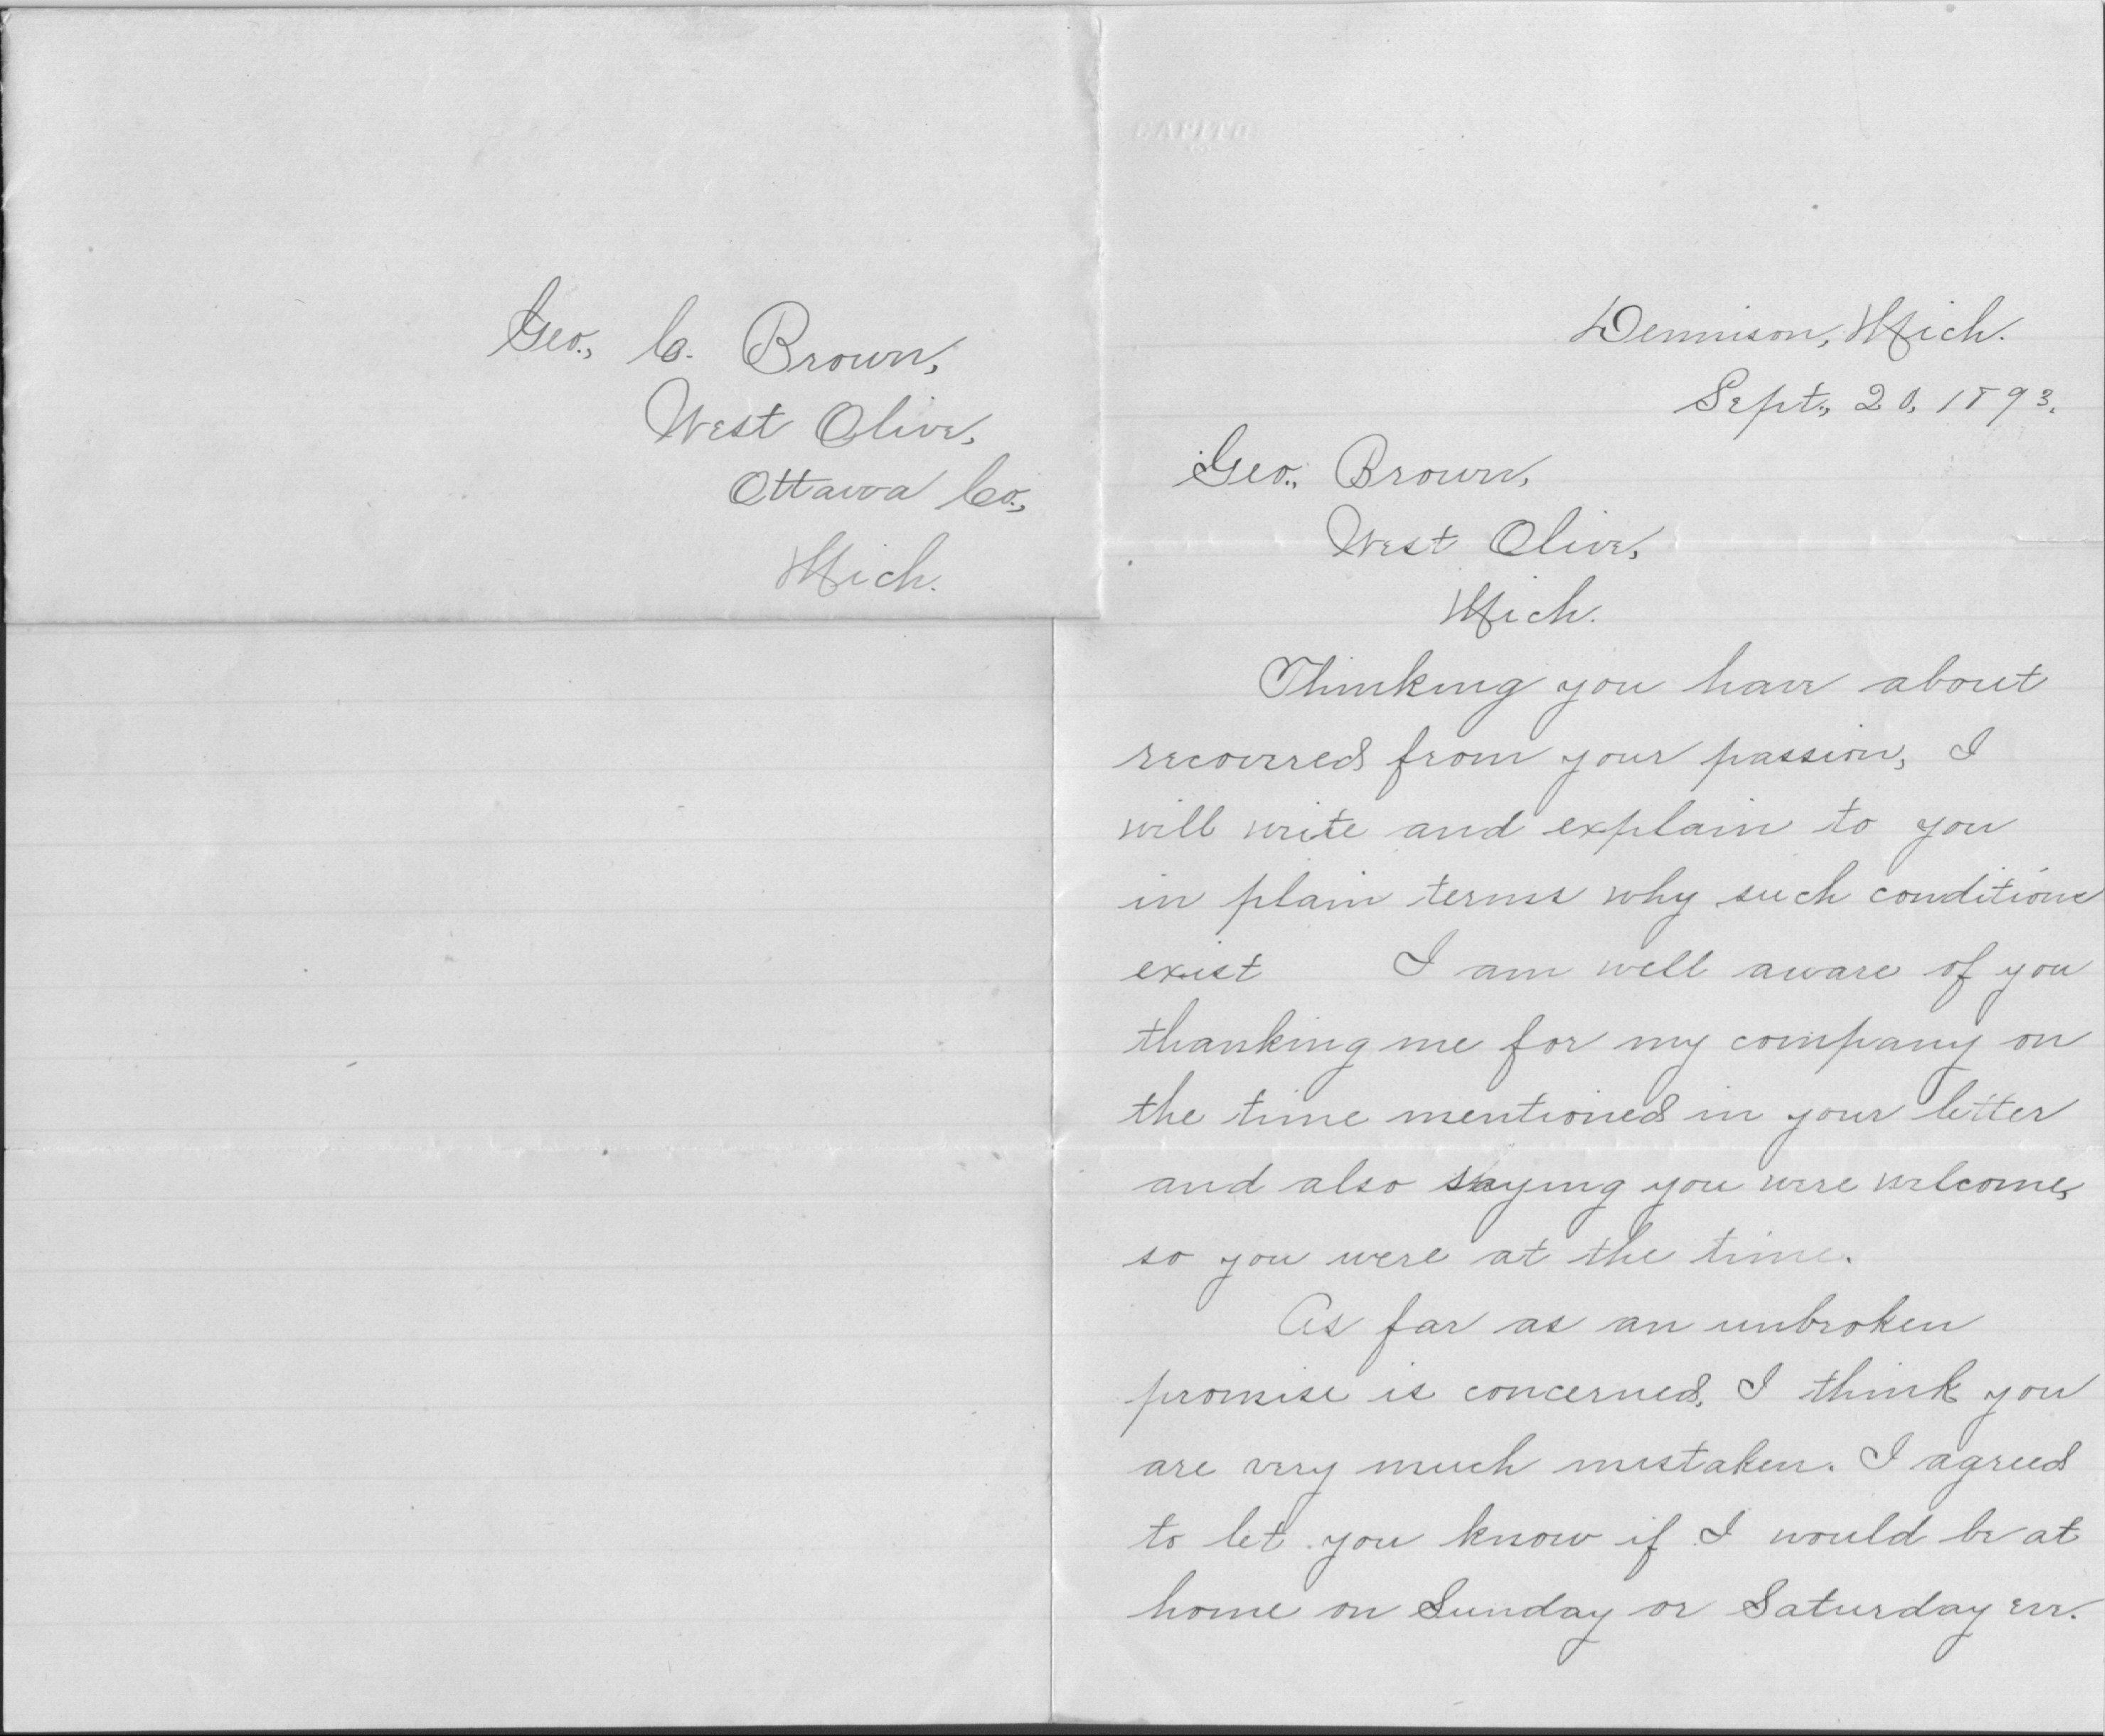 Geo., C. Brown,
West Olive,
Ottawa Co.,
Mich.
CAPITO
Dennison, Mich.
Sept., 20, 1893.
Geo., Brown,
West Olive,
Mich.
Thinking you have about
recovered from your passion, I
will write and explain to you
in plain terms why such conditions
exist I am well aware of you
thanking me for my company on
the time mentioned in your letter
and also saying you were welcome,
so you were at the time.
As far as an unbroken
promise is concerned, I think you
are very much mistaken. I agreed
to let you know if I would be at
home on Sunday or Saturday eve.